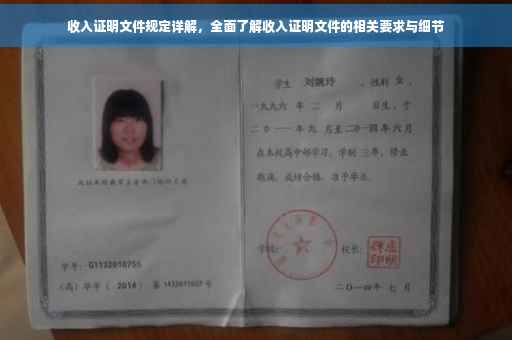 收入证明文件规定详解，全面了解收入证明文件的相关要求与细节
学生 刘婉玲 ，性别 女 ，
一九九六 年 二 月 日生，于
二〇一一年九 月至二〇一四年六月
在本校高中部学习，学制 三年，修业
期满，成绩合格，准予毕业。
校长：
学号：G1132010755
（高）毕字（ 2014 ）第 1432011027 号
二〇一四年 七 月